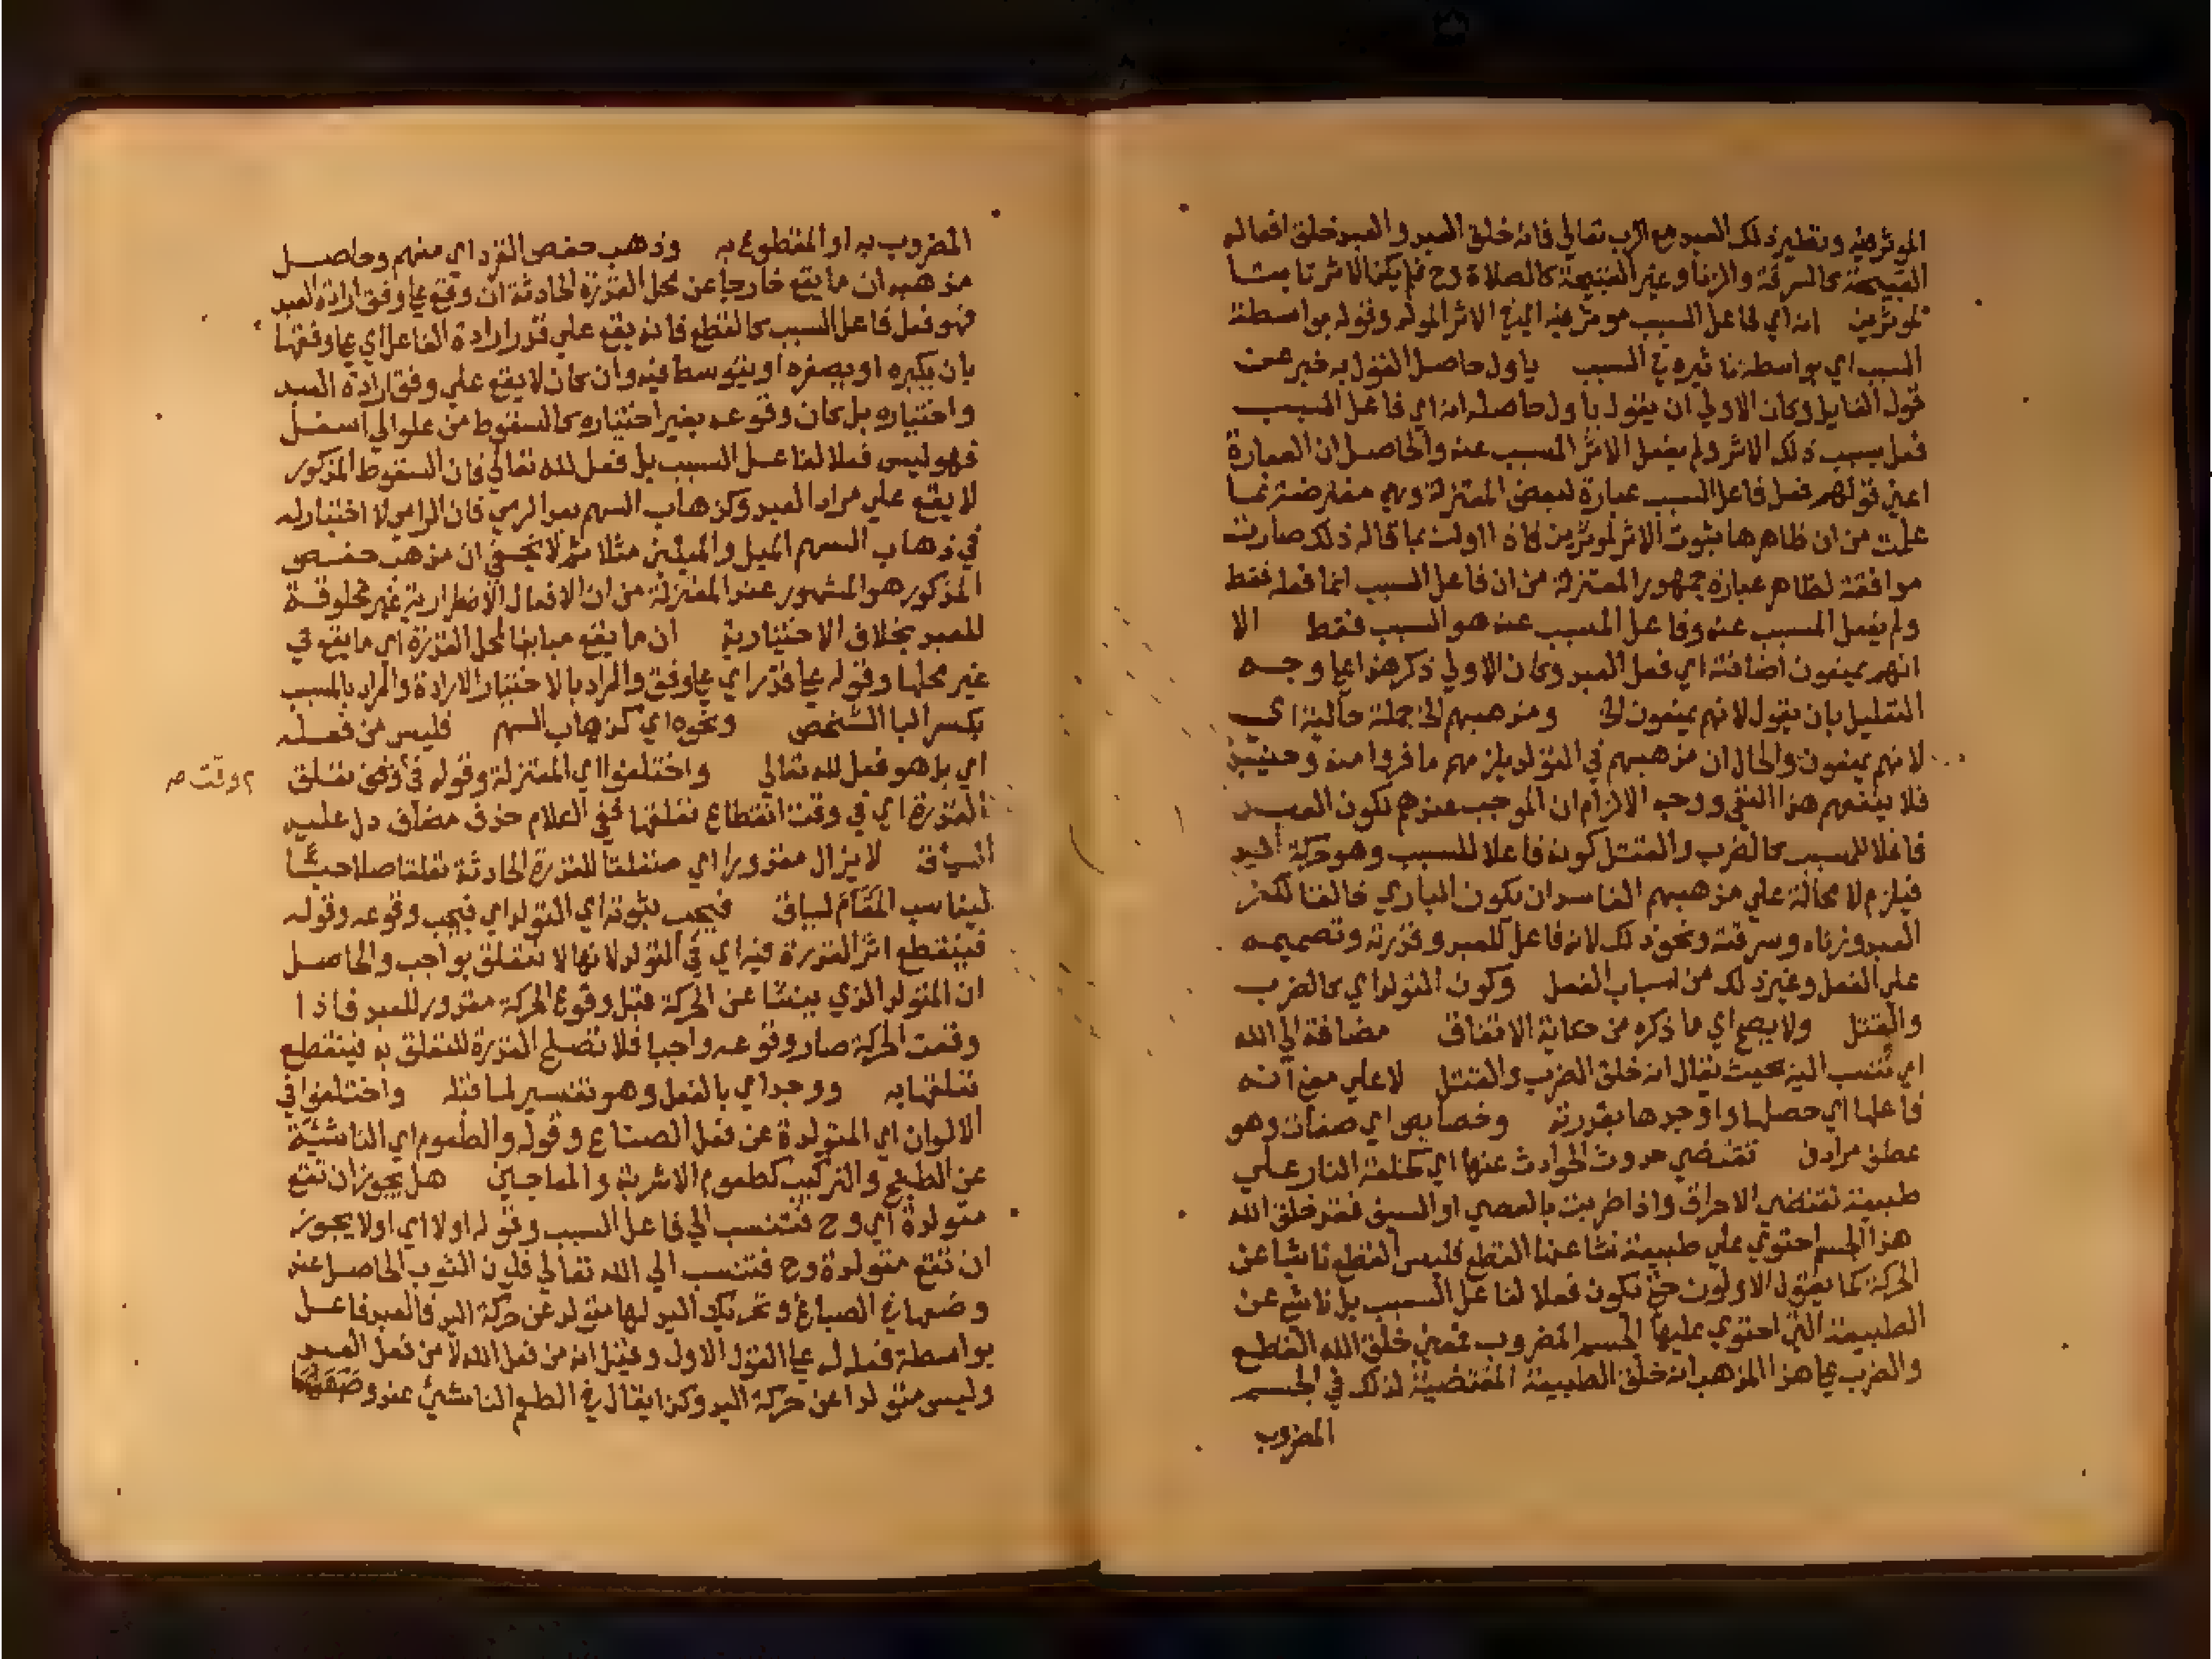 الموثر فيه ونظير ذلك العبد مع الرب تعالي فانه خلق العبد والعبد خلق افعاله
القبيحة كالسرقة والزنا وغير القبيحة كالصلاة وح فلم يكن الاثر ثابتا
لموثرين انه اي فاعل السبب موثر فيه اي في الاثر المولد وقوله بواسطة
السبب اي بواسطة تاثيره في السبب ياول حاصل القول به خبر عن
قول القايل وكان الاولي ان يقول ياول حاصله انه اي فاعل السبب
فعل سبب ذلك الاثر ولم يفعل الاثر المسبب عنه والحاصل ان العبارة
اعني قولهم فعل فاعل السبب عبارة لبعض المعتزلة وهي معترضة لما
علمت من ان ظاهرها ثبوت الاثر لموثرين فاذا اولت بما قاله ذلك صارت
موافقة لظاهر عبارة جمهور المعتزلة من ان فاعل السبب انما فعله فقط
ولم يفعل المسبب عنه وفاعل المسبب عنه هو السبب فقط الا
انهم يمنعون اضافته اي فعل العبد وكان الاولي ذكر هذا علي وجه
التعليل بان يقول لانهم يمنعون الخ ومذهبهم الخ جملة حالية اي
لانهم يمنعون والحال ان مذهبهم في التولد يلزمهم ما فروا منه وحينئذ
فلا ينفعهم هذا النفي ووجه الالزام ان الموجب عندهم لكون العبد
فاعلا للمسبب كالضرب والقتل كونه فاعلا للسبب وهو حركة اليد
فيلزم لا محالة علي مذهبهم الفاسد ان يكون الباري خالقا لكفر
العبد وزناه وسرقته ونحو ذلك لانه فاعل للعبد وقدرته وتصميمه
علي الفعل وغير ذلك من اسباب الفعل وكون المتولد اي كالضرب
والقتل ولا يصح اي ما ذكره من حكاية الاتفاق مضافة الي الله
اي تنسب اليه بحيث يقال انه خلق الضرب والقتل لا علي معني انه
فاعلها اي حصلها واوجدها بقدرته وخصايص اي صفات وهو
عطف مرادف تقتضي حدوث الحوادث عنها اي كخلقه النار علي
طبيعة تقتضي الاحراق واذا ضربت بالعصي او السيف فقد خلق الله
هذا الجسم احتوي علي طبيعة نشا عنها القطع فليس القطع ناشيا عن
الحركة كما يقول الاولون حتي تكون فعلا لفاعل السبب بل ناشي عن
الطبيعة التي احتوي عليها الجسم المضروب فمعني خلق الله القطع
والضرب علي هذا المذهب انه خلق الطبيعة المقتضية لذلك في الجسم
المضروب
المضروب به او المقطوع به وذهب حفص الفرد اي منهم وحاصل
مذهبه ان ما يقع خارجا عن محل القدرة الحادثة ان وقع علي وفق ارادة العبد
فهو فعل فاعل السبب كالقطع فانه يقع علي قدر ارادة الفاعل اي علي وفقها
بان يكبره او يصغره او يتوسط فيه وان كان لا يقع علي وفق ارادة العبد
واختياره بل كان وقوعه بغير اختياره كالسقوط من علو الي اسفل
فهو ليس فعلا لفاعل السبب بل فعل لله تعالي فان السقوط المذكور
لا يقع علي مراد العبد وكذهاب السهم بعد الرمي فان الرامي لا اختيار له
في ذهاب السهم الميل والميلين مثلا ثم لا يخفي ان مذهب حفص
المذكور هو المشهور عند المعتزلة من ان الافعال الاضطرارية غير مخلوقة
للعبد بخلاف الاختيارية ان ما يقع مباينا لمحل القدرة اي ما يقع في
غير محلها وقوله علي قدر اي علي وفق والمراد بالاختيار الارادة والمراد بالمسبب
بكسر البا الشخص ونحوه اي كذهاب السهم فليس من فعله
اي بل هو فعل لله تعالي واختلفوا اي المعتزلة وقوله في تعلق
٢ وقت صح
القدرة اي في وقت انقطاع تعلقها ففي الكلام حذف مضاف دل عليه
السياق لا يزال مقدورا اي متعلقا للقدرة الحادثة تعلقا صلاحيا
ليناسب المقام لسياق فيجب ثبوته اي التولد اي فيجب وقوعه وقوله
فينقطع اثر القدرة فيه اي في التولد لانها لا تتعلق بواجب والحاصل
ان المتولد الذي ينشا عن الحركة قبل وقوع الحركة مقدور للعبد فاذا
وقعت الحركة صار وقوعه واجبا فلا تصلح القدرة للتعلق به فينقطع
تعلقها به ووجد اي بالفعل وهو تفسير لما قبله واختلفوا في
الالوان اي المتولدة عن فعل الصناع وقوله والطعوم اي الناشية
عن الطبخ والتركيب كطعوم الاشربة والمعاجين هل يجوز ان تقع
متولدة اي وح فتنسب الي فاعل السبب وقوله اولا اي اولا يجوز
ان تقع متولدة وح فتنسب الي الله تعالي فلون الثوب الحاصل عند
وضعها في الصباغ وتحريك اليد لها متولد عن حركة اليد فالعبد فاعل
بواسطة فعله له علي القول الاول وقيل انه من فعل الله لا من فعل العبد
وليس متولدا عن حركة اليد وكذا يقال في الطعم الناشئ عند